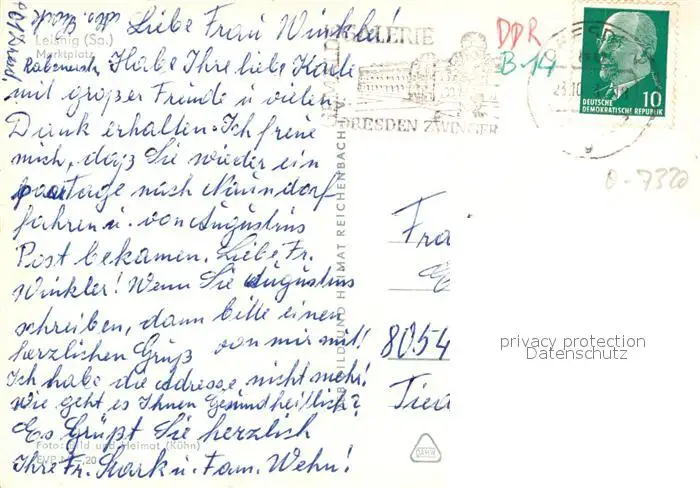 Liebe Frau Winkler!
Leisnig (Sa.)
Marktplatz
Habe Ihre liebe Karte
mit großer Freude u. vielen
Dank erhalten. Ich freue
mich, dayß Sie wieder ein
paar Tage nach Naundorf
fahren u. von Augustins
Post bekamen. Liebe Fr.
Winkler! Wenn Sie Augustins
schreiben, dann bitte einen
herzlichen Gruß von mir mit!
Ich habe die adresse nicht mehr!
Wie geht es Ihnen Gesundheitlich?
Es Grüßt Sie herzlich
Foto: Bild und Heimat (Kühn)
EVP M -,20
Ihre Fr. Stark u. Fam. Wehn!
BILD UND HEIMAT REICHENBACH
GALERIE
DRESDEN ZWINGER
DDR
B 14
DEUTSCHE
DEMOKRATISCHE REPUBLIK
10
0-7320
Frau
8054
privacy protection
Datenschutz